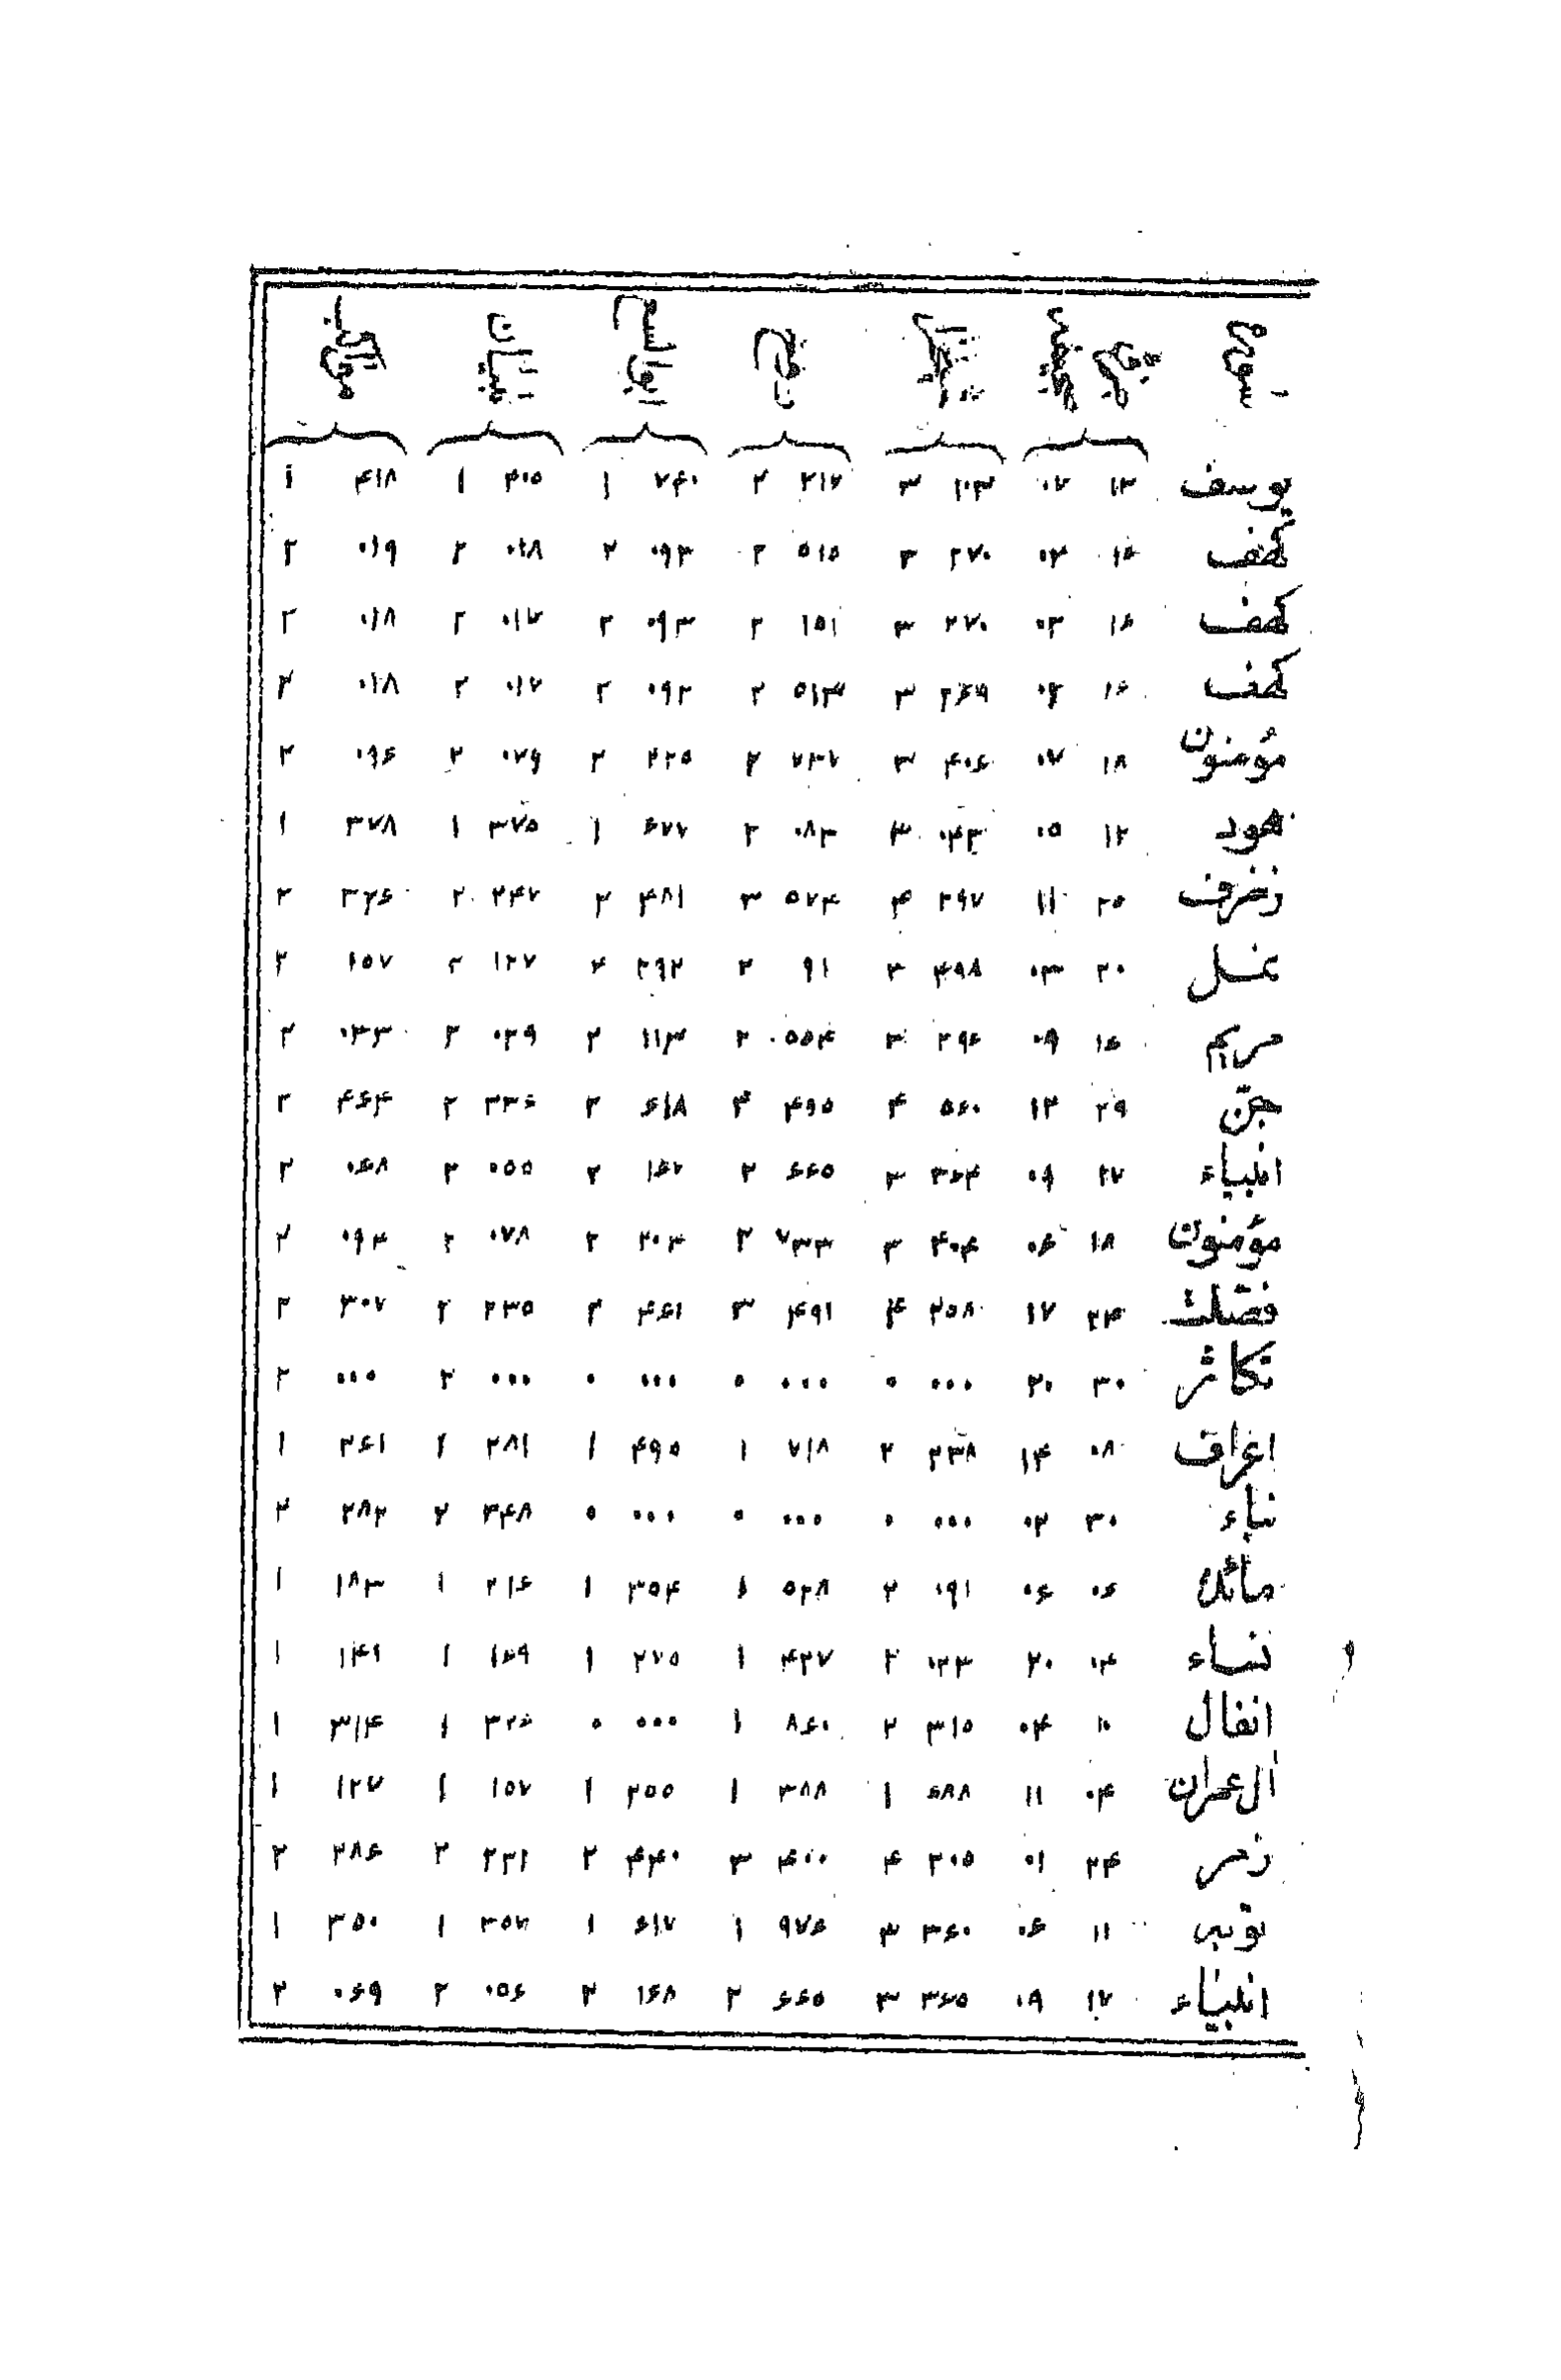 یوسف ۱۳ ۰۷ ۱۰۳ ۳ ۲۱۷ ۲ ۷۴۰ ۱ ۴۰۵ ۱ ۴۱۸ ۱
کهف ۱۶ ۰۴ ۲۷۰ ۳ ۵۱۵ ۲ ۰۹۳ ۲ ۰۱۸ ۲ ۰۱۹ ۲
کهف ۱۶ ۰۳ ۲۷۰ ۳ ۱۵۱ ۲ ۰۹۳ ۲ ۰۱۷ ۲ ۰۱۸ ۲
کهف ۱۶ ۲۶۹ ۳ ۵۱۳ ۲ ۰۹۲ ۲ ۰۱۷ ۲ ۰۱۸ ۲
مؤمنون ۱۸ ۰۷ ۴۰۶ ۳ ۷۳۷ ۲ ۲۲۵ ۲ ۰۷۹ ۲ ۰۹۶ ۲
هود ۱۲ ۰۵ ۰۴۳ ۳ ۰۸۳ ۲ ۶۷۷ ۱ ۳۷۵ ۱ ۳۷۸ ۱
زخرف ۲۵ ۱۱ ۲۹۷ ۴ ۵۷۴ ۳ ۴۸۱ ۲ ۲۴۷ ۲ ۳۲۶ ۲
نمل ۲۰ ۰۳ ۴۹۸ ۳ ۹۱ ۲ ۲۹۲ ۲ ۱۲۷ ۲ ۱۵۷ ۲
مریم ۱۶ ۰۹ ۲۹۶ ۳ ۵۵۴ ۲ ۱۱۳ ۲ ۰۲۹ ۲ ۰۳۳ ۲
جنّ ۲۹ ۱۲ ۵۶۰ ۴ ۴۹۵ ۳ ۶۱۸ ۲ ۳۳۶ ۲ ۴۶۴ ۲
انبیاء ۲۷ ۰۹ ۳۶۴ ۳ ۶۶۵ ۲ ۱۶۷ ۲ ۰۵۵ ۲ ۰۶۸ ۲
مؤمنون ۱۸ ۰۶ ۴۰۴ ۳ ۷۳۳ ۲ ۲۰۳ ۲ ۰۷۸ ۲ ۰۹۴ ۲
فصّلت ۲۴ ۱۷ ۲۵۸ ۴ ۴۹۱ ۳ ۴۶۱ ۲ ۲۳۵ ۲ ۳۰۷ ۲
تکاثر ۳۰ ۲۰ ۰۰۰ ۰ ۰۰۰ ۰ ۰۰۰ ۰ ۰۰۰ ۲ ۰۰۰ ۲
اعراف ۰۸ ۱۴ ۲۳۸ ۲ ۷۱۸ ۱ ۴۹۵ ۱ ۲۸۱ ۱ ۲۶۱ ۱
نباء ۳۰ ۰۲ ۰۰۰ ۰ ۰۰۰ ۰ ۰۰۰ ۰ ۳۴۸ ۲ ۲۸۲ ۲
مائده ۰۶ ۰۶ ۰۹۱ ۲ ۵۲۸ ۱ ۳۵۴ ۱ ۲۱۶ ۱ ۱۸۳ ۱
نساء ۰۴ ۲۰ ۰۲۳ ۲ ۴۲۷ ۱ ۲۷۵ ۱ ۱۶۹ ۱ ۱۴۹ ۱
انفال ۱۰ ۰۴ ۳۱۵ ۲ ۸۶۰ ۱ ۰۰۰ ۰ ۳۲۶ ۱ ۳۱۴ ۱
آل عمران ۰۴ ۱۱ ۶۸۸ ۱ ۳۸۸ ۱ ۲۵۵ ۱ ۱۵۷ ۱ ۱۲۷ ۱
زمر ۲۴ ۰۱ ۲۰۵ ۴ ۴۰۰ ۳ ۴۴۰ ۲ ۲۲۱ ۲ ۲۸۶ ۲
توبه ۱۱ ۰۶ ۳۶۰ ۳ ۹۷۶ ۱ ۶۱۷ ۱ ۳۵۷ ۱ ۳۵۰ ۱
انبیاء ۱۷ ۰۹ ۳۶۵ ۳ ۶۶۵ ۲ ۱۶۸ ۲ ۰۵۶ ۲ ۰۶۹ ۲